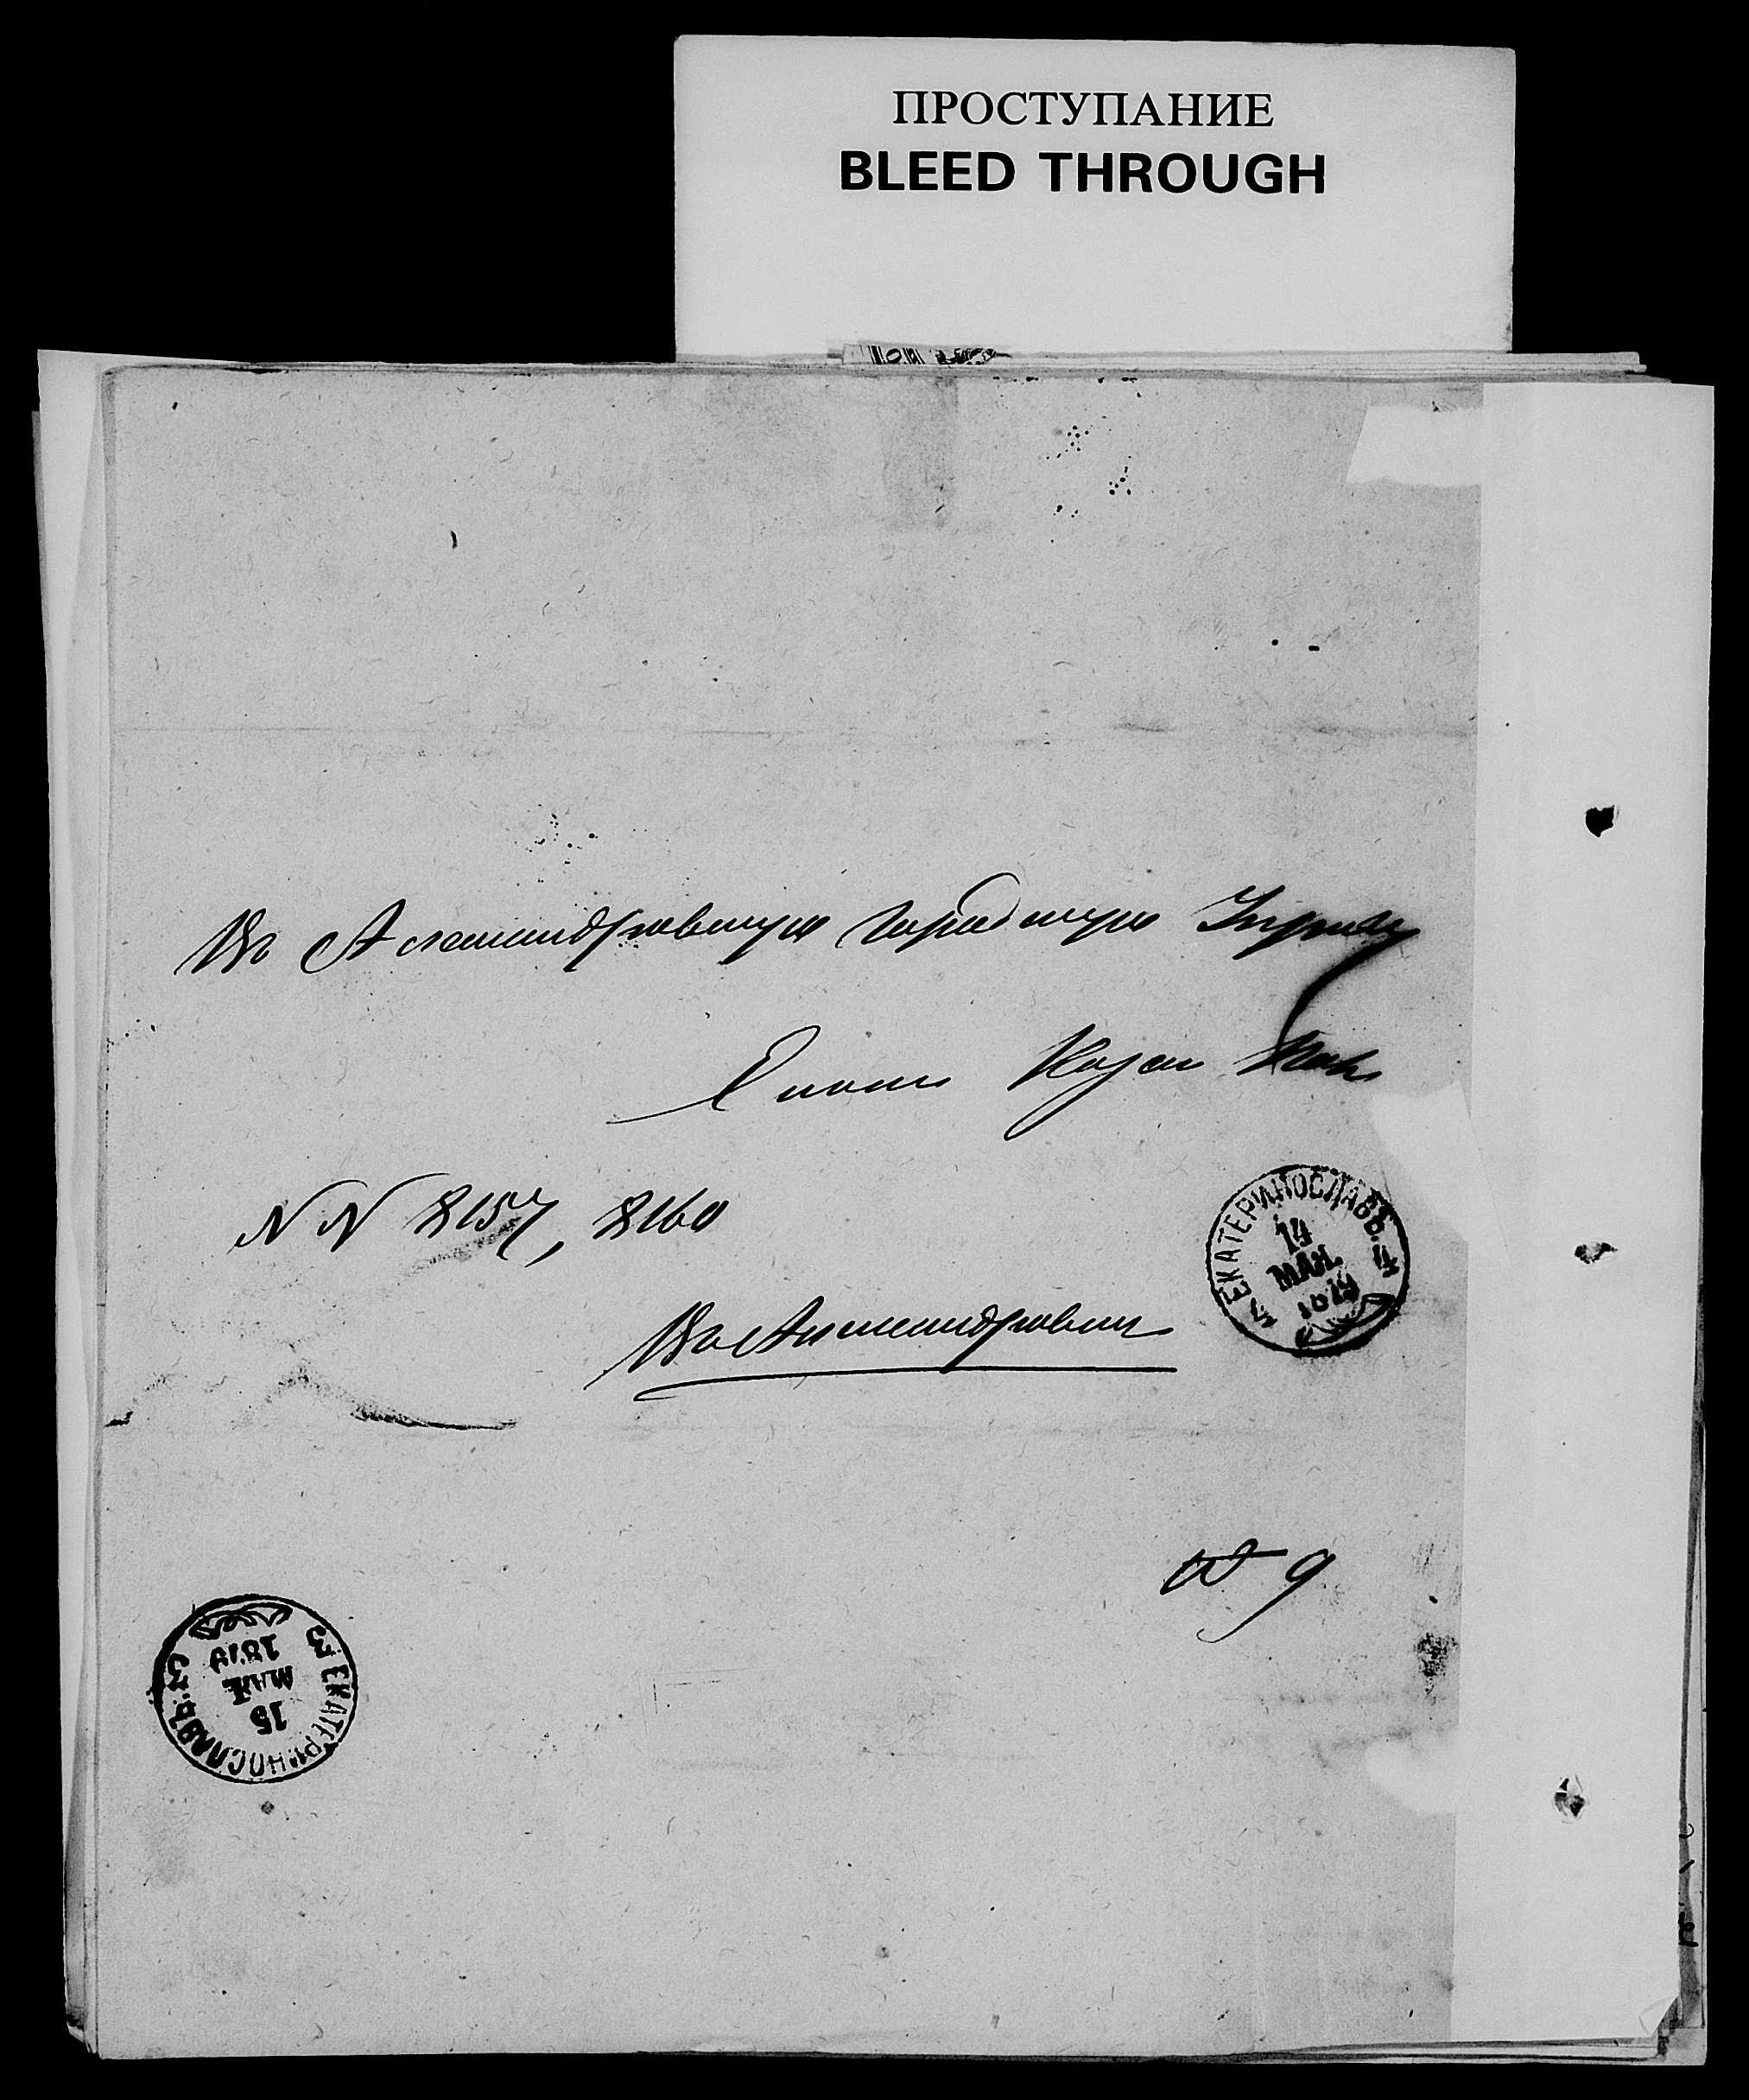 ПРОСТУПАНИЕ
BLEED THROUGH
Въ Александровскую городскую Управу
NN 8157, 8160
ЕКАТЕРИНОСЛАВЪ. 4
14
МАЯ.
1879
Въ Александровскъ
№ 9
3 ЕКАТЕРИНОСЛАВЪ. 3
15
МАЯ
1879